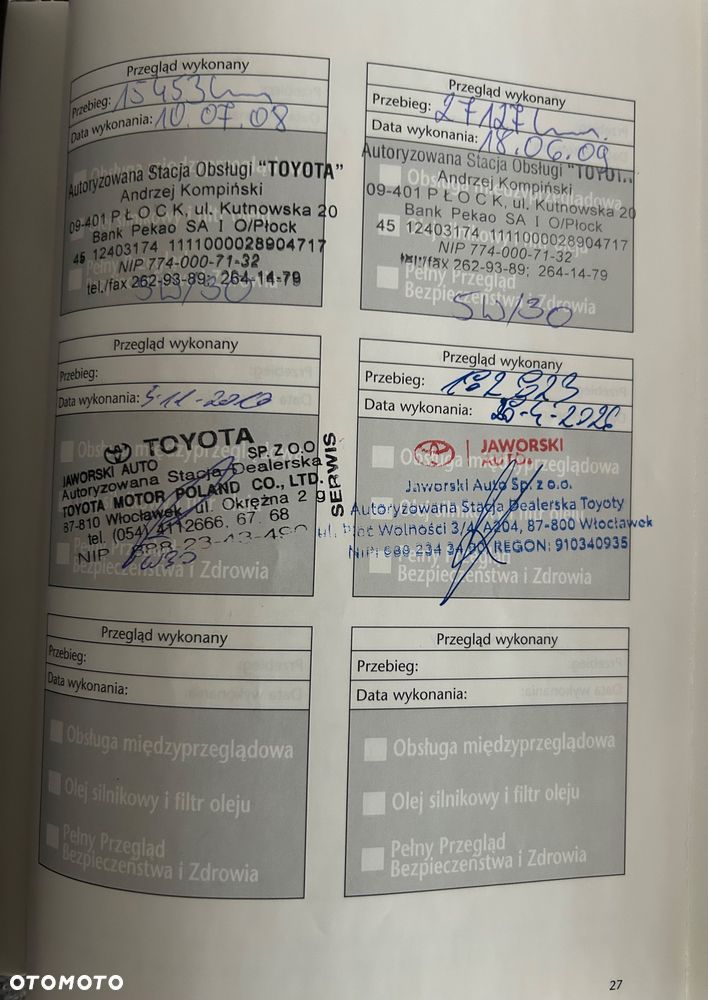 Przegląd wykonany
Przebieg: 15453km
Data wykonania: 10.07.08
Autoryzowana Stacja Obsługi "TOYOTA"
Andrzej Kompiński
09-401 PŁOCK, ul. Kutnowska 20
Bank Pekao SA I O/Płock
45 12403174 1111000028904717
NIP 774-000-71-32
tel./fax 262-93-89; 264-14-79
5W/30
Przegląd wykonany
Przebieg: 27127km.
Data wykonania: 18.06.09
Autoryzowana Stacja Obsługi "TOYOT
Andrzej Kompiński
09-401 PŁOCK, ul. Kutnowska 20
Bank Pekao SA I O/Płock
45 12403174 1111000028904717
NIP 774-000-71-32
tel./fax 262-93-89; 264-14-79
Pełny Przegląd
Bezpieczeństwa i Zdrowia
5W/30
Przegląd wykonany
Przebieg:
Data wykonania: 5-11-2010
TOYOTA
JAWORSKI AUTO SP. Z O.O
Autoryzowana Stacja Dealerska
TOYOTA MOTOR POLAND CO., LTD.
87-810 Włocławek, ul. Okrężna 2 g
tel. (054) 4112666, 67, 68
NIP 888-23-43-490
SERWIS
5W30
Bezpieczeństwa i Zdrowia
Przegląd wykonany
Przebieg: 182 823
Data wykonania: 4-2026
JAWORSKI
AUTO
Jaworski Auto Sp. z o.o.
Autoryzowana Stacja Dealerska Toyoty
ul. Płac Wolności 3/4 A204, 87-800 Włocławek
NIP: 888 234 34 90 REGON: 910340935
Bezpieczeństwa i Zdrowia
Przegląd wykonany
Przebieg:
Data wykonania:
Obsługa międzyprzeglądowa
Olej silnikowy i filtr oleju
Pełny Przegląd
Bezpieczeństwa i Zdrowia
Przegląd wykonany
Przebieg:
Data wykonania:
Obsługa międzyprzeglądowa
Olej silnikowy i filtr oleju
Pełny Przegląd
Bezpieczeństwa i Zdrowia
27
OTOMOTO